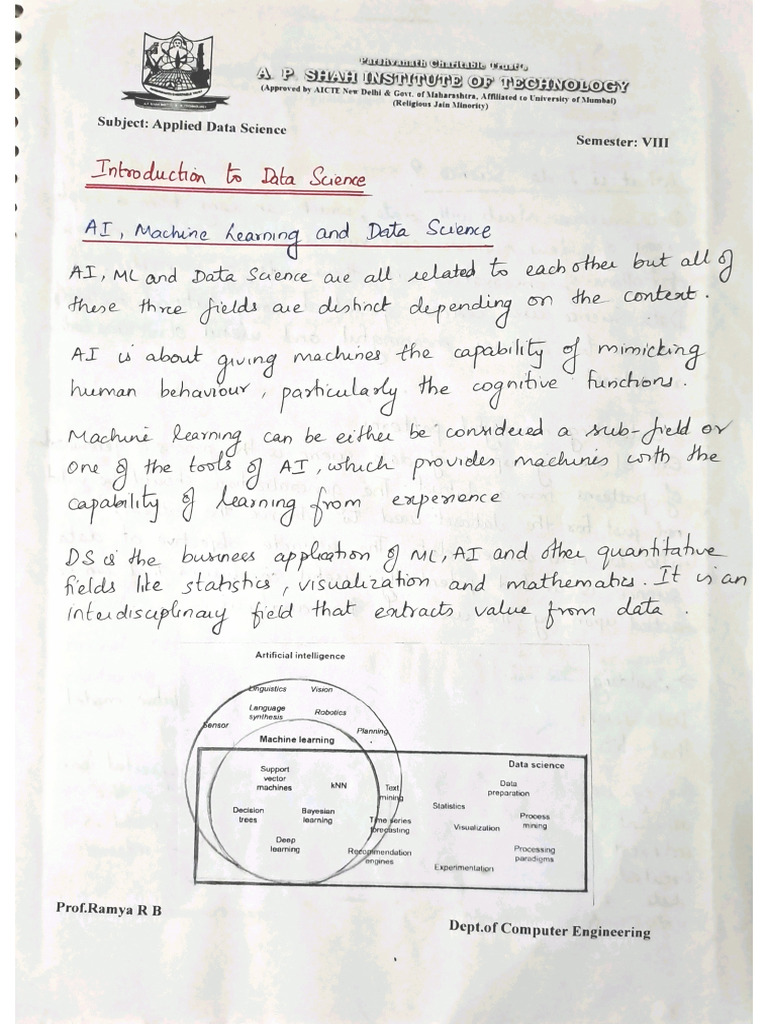 Parshvanath Charitable Trust's
A. P. SHAH INSTITUTE OF TECHNOLOGY
(Approved by AICTE New Delhi & Govt. of Maharashtra, Affiliated to University of Mumbai)
(Religious Jain Minority)
Subject: Applied Data Science
Semester: VIII
Introduction to Data Science
AI, Machine Learning and Data Science
AI, ML and Data Science are all related to each other but all of
these three fields are distinct depending on the context.
AI is about giving machines the capability of mimicking
human behaviour, particularly the cognitive functions.
Machine learning can be either be considered a sub-field or
one of the tools of AI, which provides machines with the
capability of learning from experience
DS is the business application of ML, AI and other quantitative
fields like statistics, visualization and mathematics. It is an
interdisciplinary field that extracts value from data.
Artificial intelligence
Linguistics Vision
Language
synthesis
Robotics
Sensor
Planning
Machine learning
Data science
Support
vector
machines
kNN
Text
mining
Data
preparation
Statistics
Decision
trees
Bayesian
learning
Time series
forecasting
Visualization
Process
mining
Deep
learning
Recommendation
engines
Processing
paradigms
Experimentation
Prof.Ramya R B
Dept.of Computer Engineering